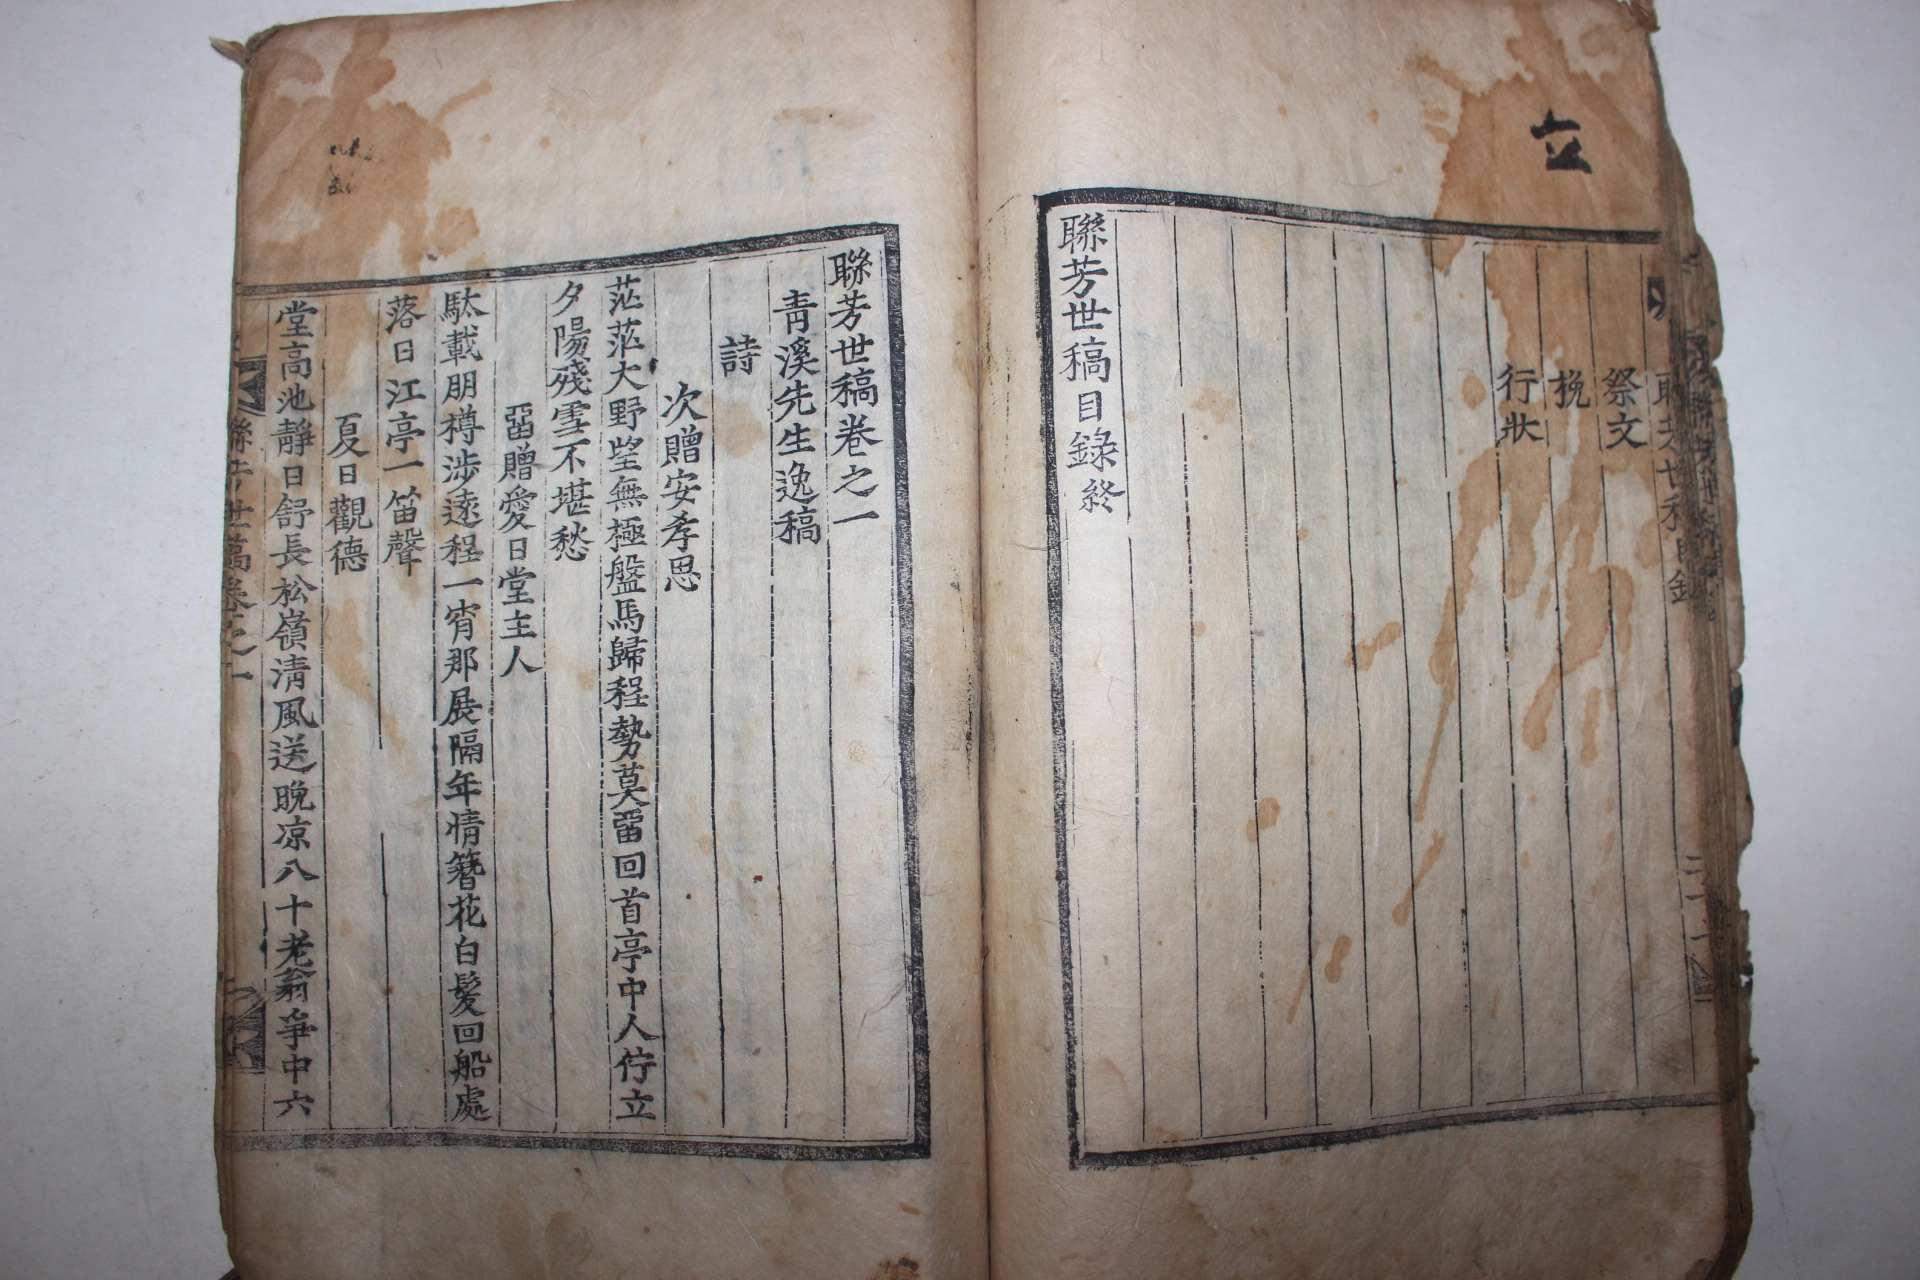 立
祭文
挽
行狀
聯芳世稿目錄終
聯芳世稿卷之一
靑溪先生逸稿
詩
次贈安孝思
茫茫大野望無極盤馬歸程勢莫留回首亭中人佇立
夕陽殘雪不堪愁
留贈愛日堂主人
駄載朋樽涉遠程一宵那展隔年情簪花白髮回船處
落日江亭一笛聲
夏日觀德
堂高池靜日舒長松嶺清風送晚凉八十老翁爭中六
聯芳世稿卷之一